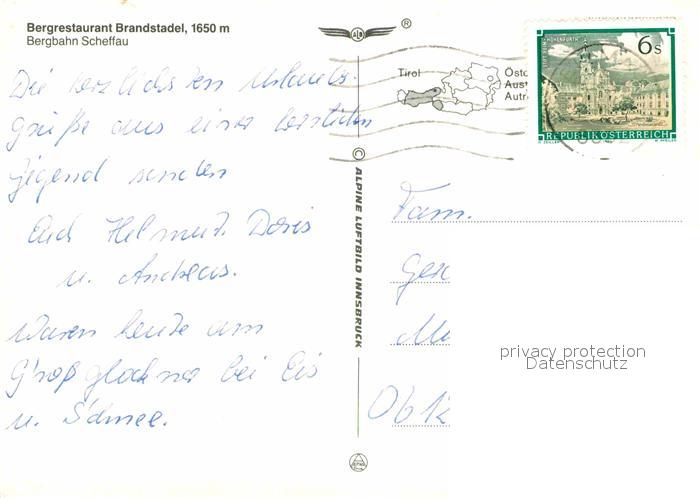 Bergrestaurant Brandstadel, 1650 m
Bergbahn Scheffau
Die herzlichsten Urlaubs-
grüße aus einer herrlichen
Gegend senden
Euch Helmut, Doris
u. Andreas.
Waren heute am
Großglockner bei Eis
u. Schnee.
ALB ®
Tirol
Öste
Aust
Autr
STIFT REIN-HOHENFURTH
6s
REPUBLIK ÖSTERREICH
© ALPINE LUFTBILD INNSBRUCK
Fam.
privacy protection
Datenschutz